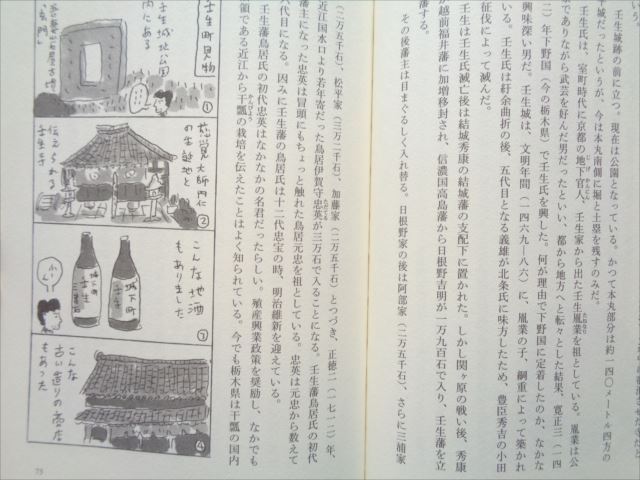 壬生城跡の前に立つ。現在は公園となっている。かつて本丸部分は約一四〇メートル四方の
城だったというが、今は本丸南側に堀と土塁を残すのみだ。
壬生氏は、室町時代に京都の地下官人、壬生家から出た壬生胤業を祖としている。胤業は公
でありながら武芸を好んだ男だったといい、都から地方へと転々とした結果、寛正三(一四
二)年下野国(今の栃木県)で壬生氏を興した。何が理由で下野国に定着したのか、なかな
興味深い男だ。壬生城は、文明年間(一四六九〜八六)に、胤業の子、綱重によって築かれ
いる。壬生氏は紆余曲折の後、五代目となる義雄が北条氏に味方したため、豊臣秀吉の小田
征伐によって滅んだ。
壬生は壬生氏滅亡後は結城秀康の結城藩の支配下に置かれた。しかし関ヶ原の戦い後、秀康
が越前福井藩に加増移封され、信濃国高島藩から日根野吉明が一万九百石で入り、壬生藩を立
藩する。
その後藩主は目まぐるしく入れ替る。日根野家の後は阿部家(二万五千石)、さらに三浦家
(二万五千石)、松平家(三万二千石)、加藤家(二万五千石)とつづき、正徳二(一七一二)年、
近江国水口より若年寄だった鳥居伊賀守忠英が三万石で入ることになる。壬生藩鳥居氏の初代
藩主になった忠英は冒頭にもちょっと触れた鳥居元忠を祖としている。忠英は元忠から数えて
六代目になる。因みに壬生藩の鳥居氏は十二代忠宝の時、明治維新を迎えている。
壬生藩鳥居氏の初代忠英はなかなかの名君だったらしい。殖産興業政策を奨励し、なかでも
領である近江から干瓢の栽培を伝えたことはよく知られている。今でも栃木県は干瓢の国内
壬生町見物
壬生城址公園
内にある
①
慈覚大師円仁
の生誕地と
伝えられる
壬生寺
②
こんな地酒
もありました
城下町
壬生
城下町
壬生
③
こんな
古い造りの商店
もあった
④
75